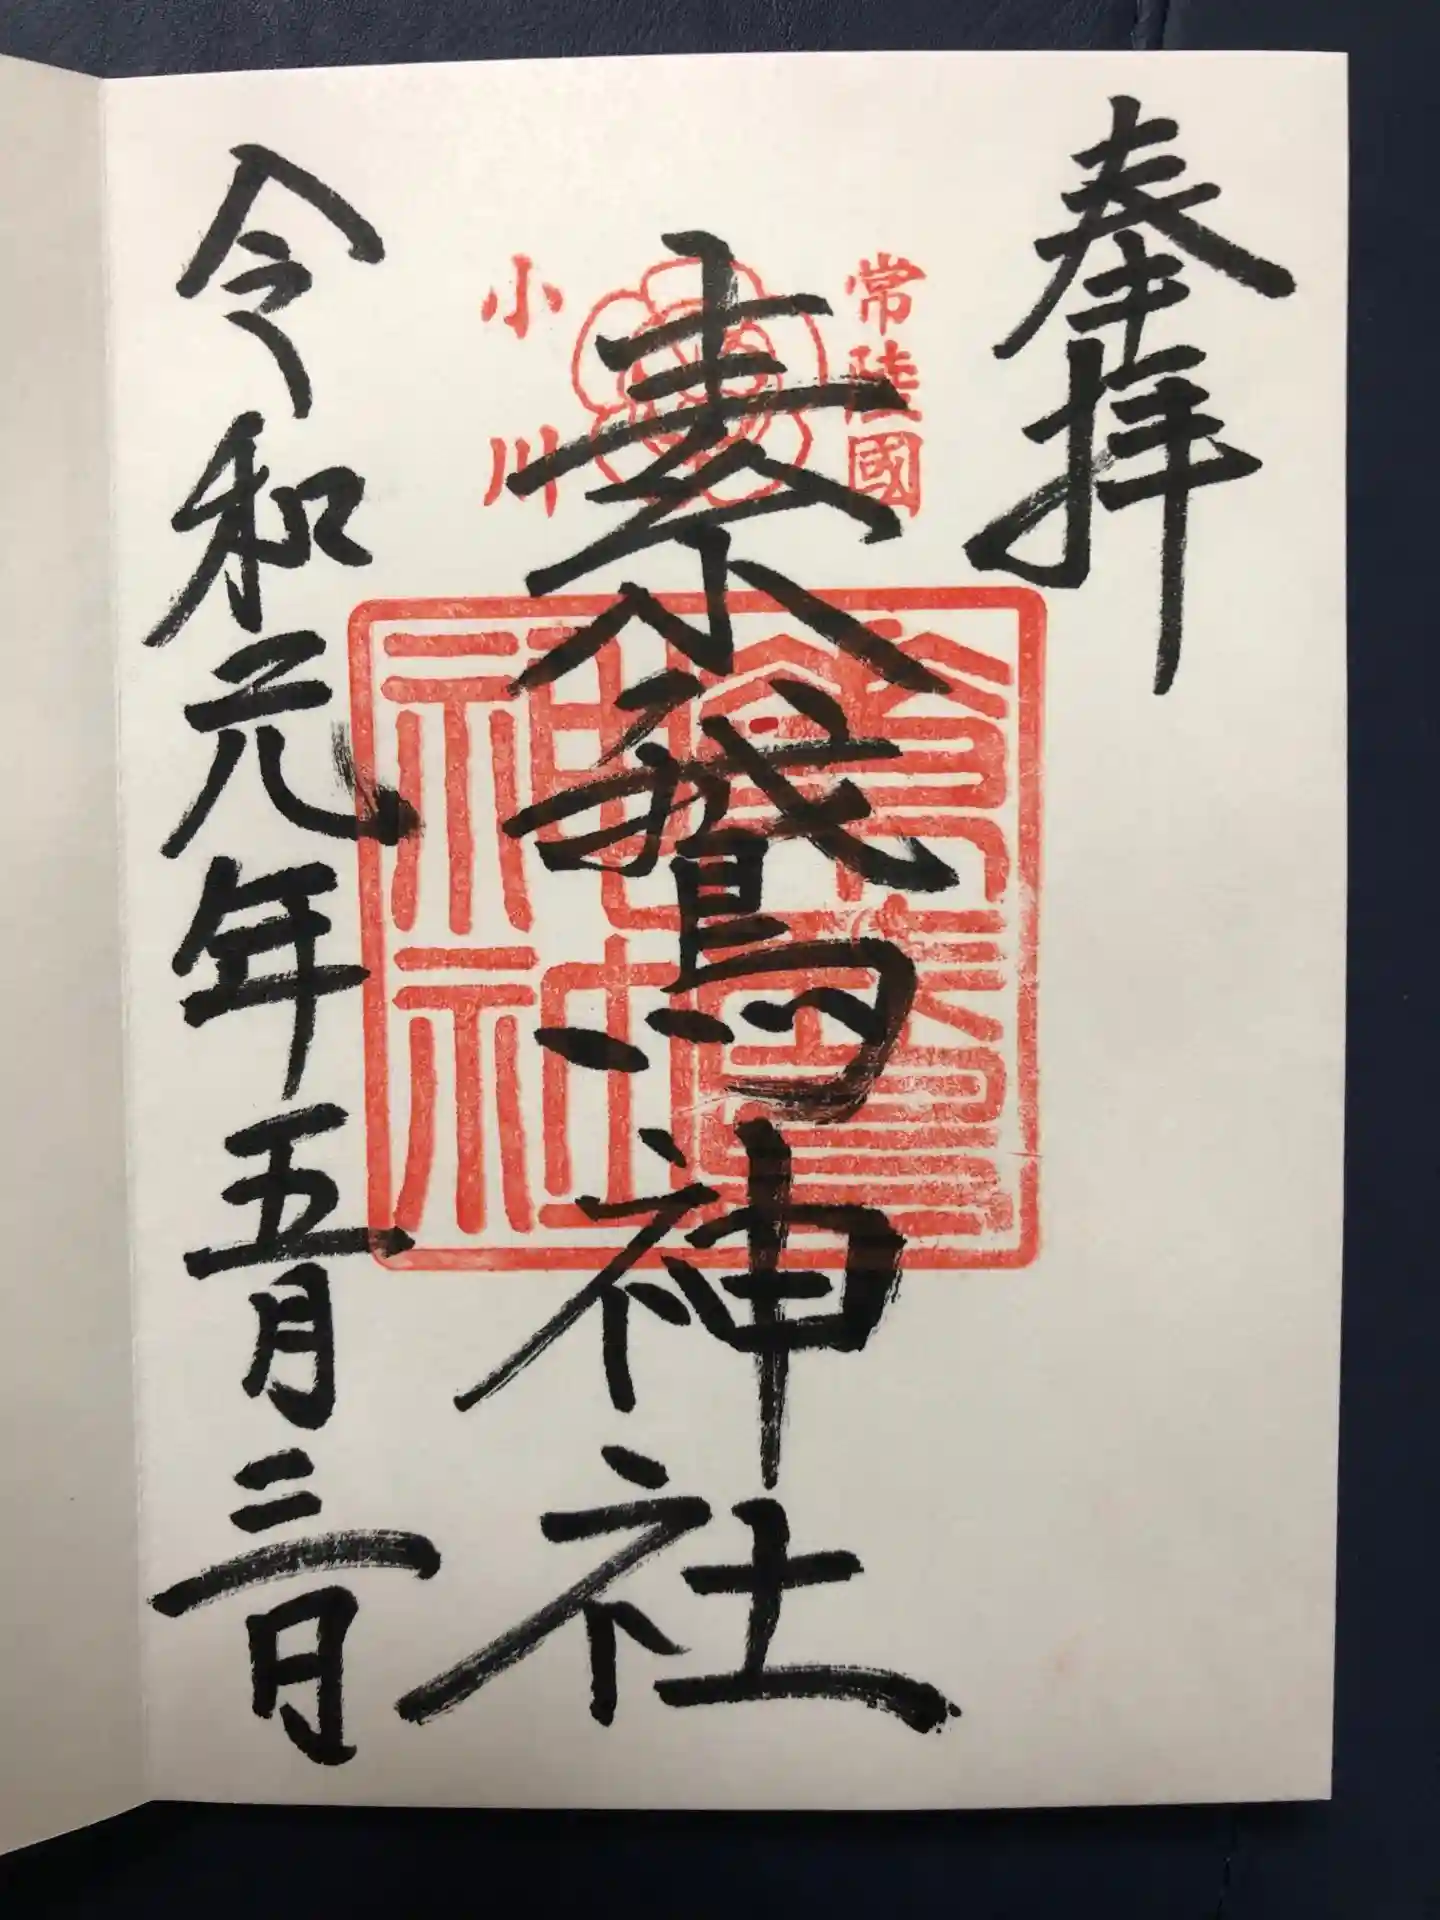 奉拝
常陸國
素鵞神社
小川
素鵞神社
令和元年五月三日